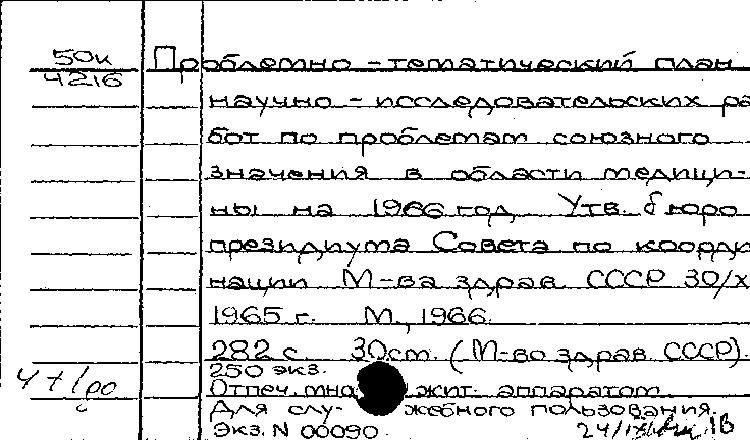 50к
4216
Проблемно-тематический план
научно-исследовательских ра
бот по проблемам союзного
значения в области медици-
ны на 1966 год. Утв. бюро
президиума Совета по коорди
нации М-ва здрав. СССР 30/X
1965 г. М., 1966.
282 с. 30 см. (М-во здрав. СССР).
250 экз.
Отпеч. мно жит. аппаратом
Для слу- жебного пользования.
Экз. N 00090